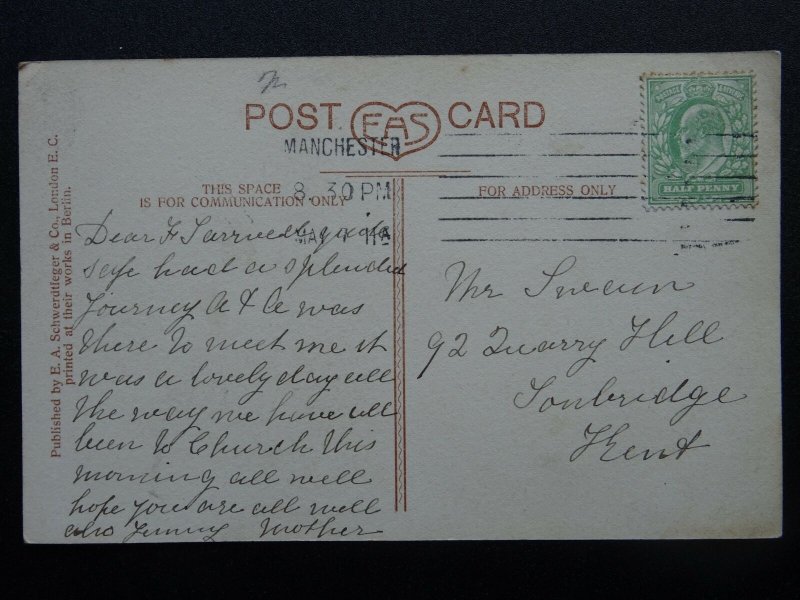 POST EAS CARD
MANCHESTER
8. 30 PM
MAY 7 11
HALF PENNY
THIS SPACE
IS FOR COMMUNICATION ONLY
FOR ADDRESS ONLY
Published by E. A. Schwerdtfeger & Co., London E. C.
printed at their works in Berlin.
Dear F I arrived
safe had a splendid
Journey A & A was
there to meet me it
was a lovely day all
the way we have all
been to Church this
morning all well
hope you are all well
also Jenny Mother
Mr Swain
92 Quarry Hill
Tonbridge
Kent